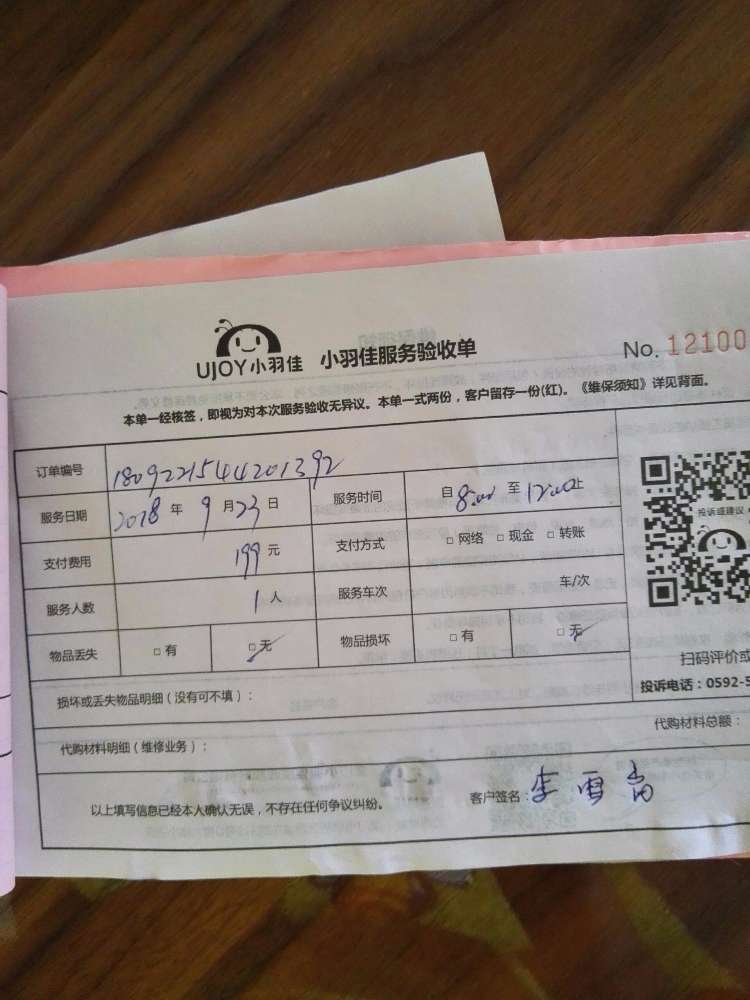 UJOY小羽佳 小羽佳服务验收单 No. 12100
本单一经核签，即视为对本次服务验收无异议。本单一式两份，客户留存一份(红)。《维保须知》详见背面。
订单编号 1809221544201392
服务日期 2018 年 9 月 23 日 服务时间 自 8:00 至 12:00 止
投诉或建议
支付费用 199 元 支付方式 □ 网络 □ 现金 □ 转账
服务人数 1 人 服务车次 车/次
物品丢失 □ 有 □ 无 物品损坏 □ 有 □ 无
扫码评价或
投诉电话：0592-5
损坏或丢失物品明细（没有可不填）：
代购材料总额：
代购材料明细（维修业务）：
以上填写信息已经本人确认无误，不存在任何争议纠纷。 客户签名：李雨